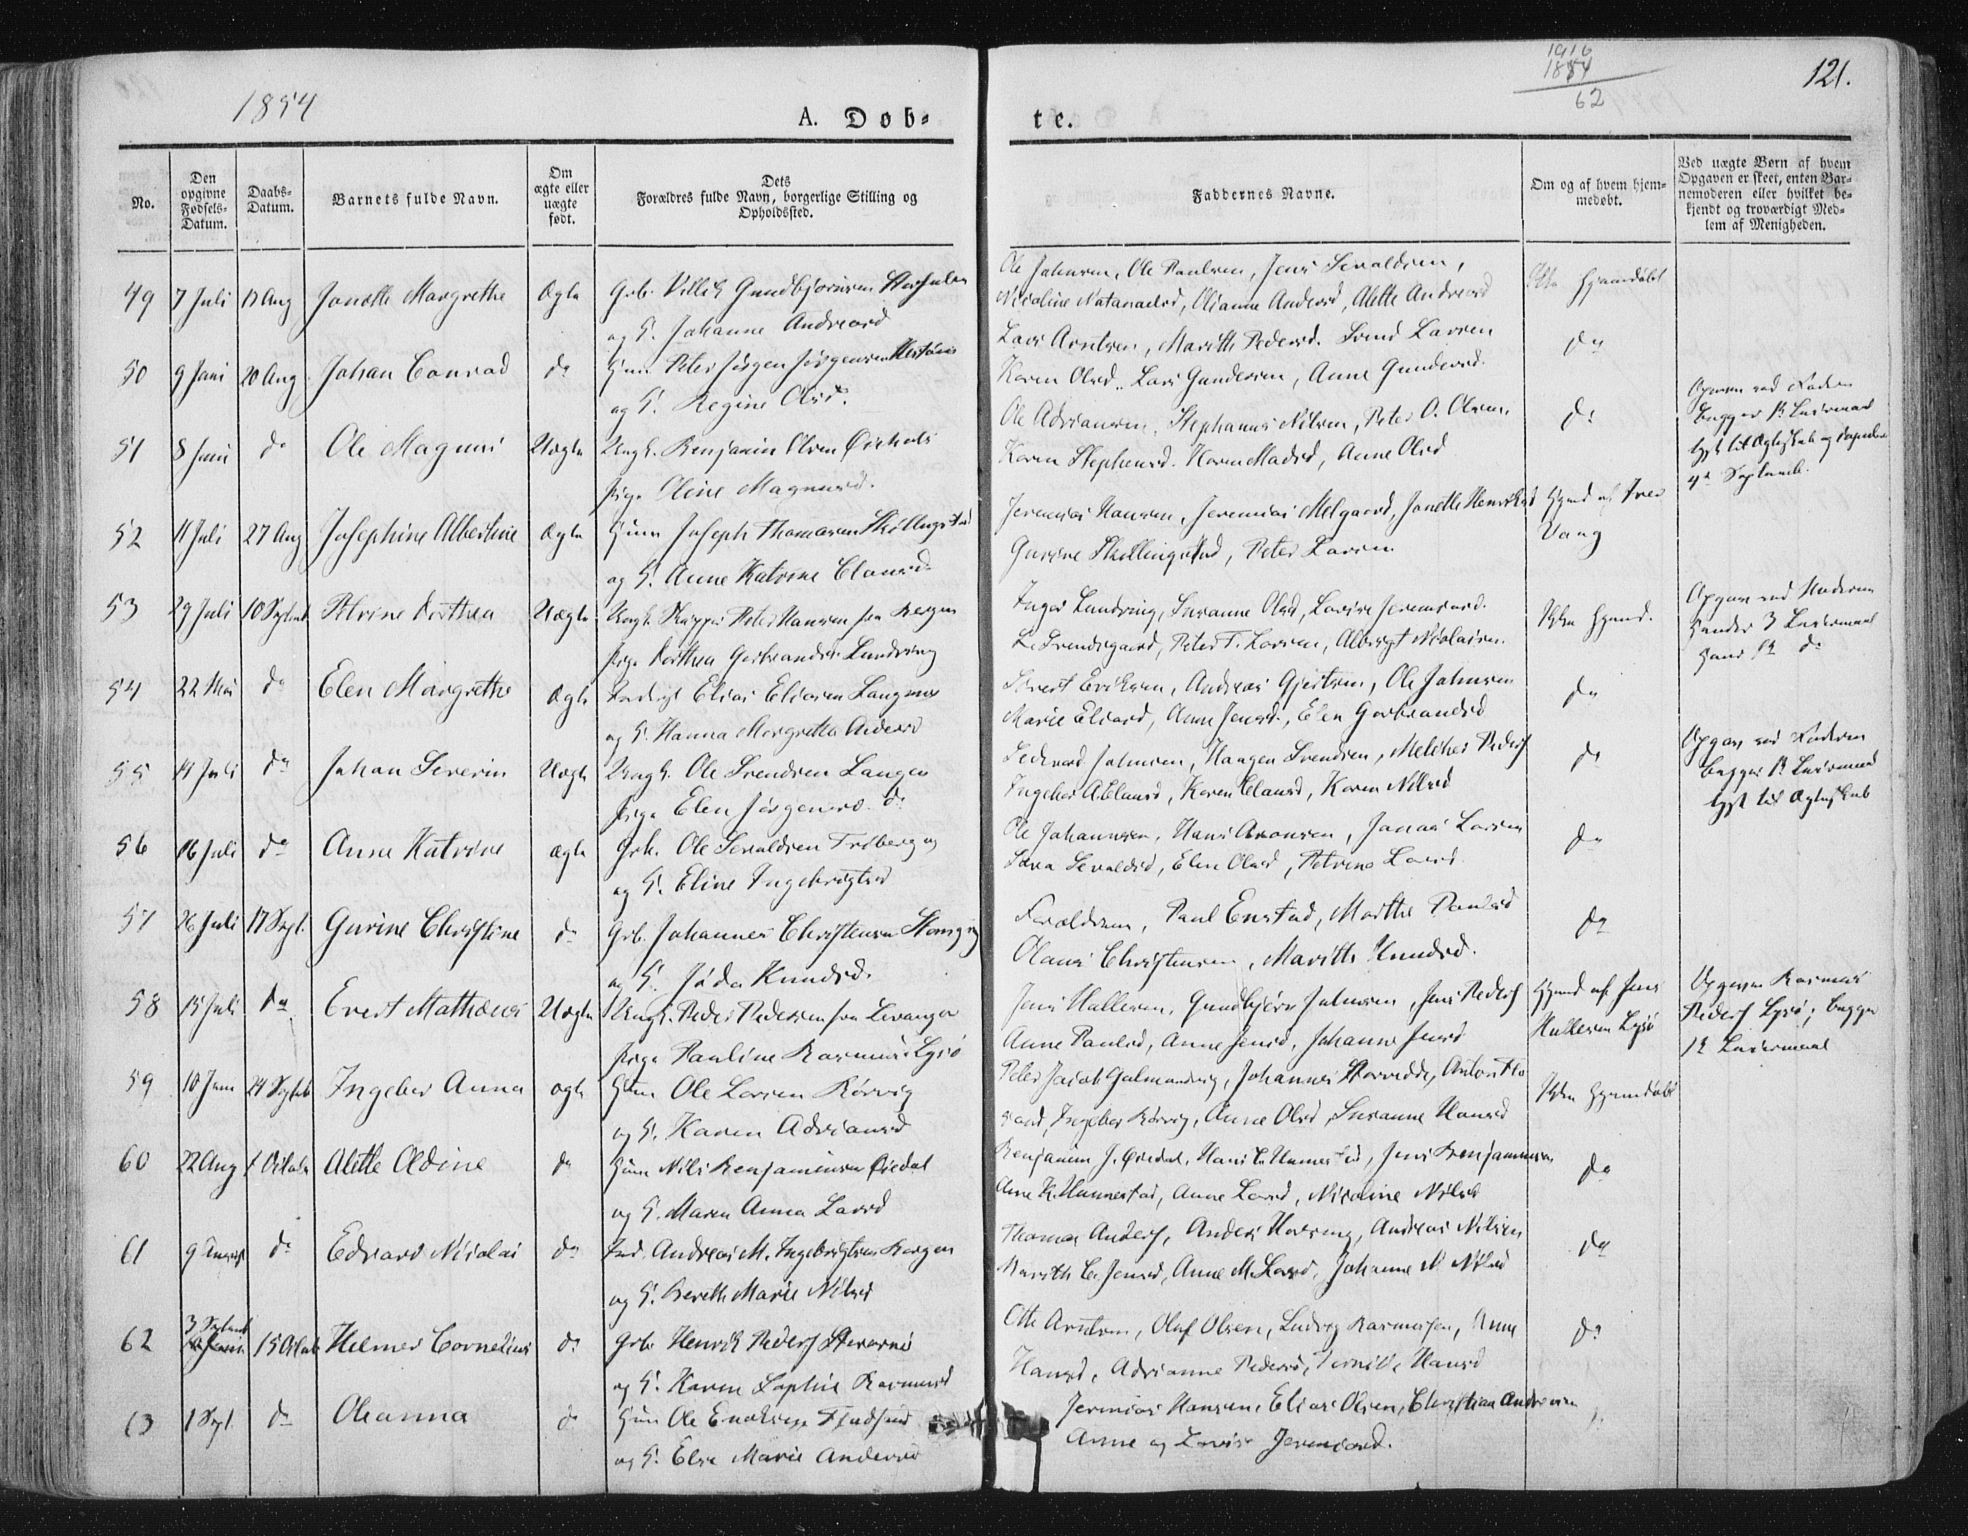 1854
A. Døb-
te.
1916
1854
62
121.
No.
Den opgivne Fødsels-Datum.
Daabs-Datum.
Barnets fulde Navn.
Om ægte eller uægte født.
Dets
Forældres fulde Navn, borgerlige Stilling og
Opholdssted.
Faddernes Navne.
Om og af hvem hjem-
medøbt.
Ved uægte Børn af hvem
Opgaven er skeet, enten Bar-
nemoderen eller hvilket be-
kjendt og troværdigt Med-
lem af Menigheden.
49 7 Juli 13 Aug Janette Margrethe Ægte
og H. Johanne Andreasd
Ole Johnsen, Ole Paulsen, Jens Sevaldsen,
Nicoline Natanaelsd, Olianne Andersd, Alette Andreasd
Ikke hjemdøbt
50 9 Juni 20 Aug Johan Conrad do
og H. Regine Olsd.
Lars Arntsen, Marith Pedersd. Svend Larsen
Karen Olsd. Lars Gundersen, Anne Gundersd.
do
51 8 Juni do Ole Magnus Uægte
Ungk. Benjamin Olsen
Pige Oline Magnusd.
Ole Adriansen, Stephanus Nilsen, Peter O. Olsen,
Karen Stephensd. Karen Madsd, Anne Olsd
do
Opgiven ved Faderen
begges 1ste Leiermaal
lyst til Ægteskab og copuleret
4de Septemb.
52 11 Juli 27 Aug Josephine Albertine Ægte
Huusm Joseph Thomassen Skillingstad
og H. Anne Katrine Clausd.
Jeremias Hansen, Jeremias Melgaard, Janette Henriksd
Gurine Skillingstad, Peter Larsen
Hjemd af Iver
Vang
53 29 Juli 10 Septemb Petrine Dorthea Uægte
Ungk. Skipper Peter Hansen fra Bergen
Pige Dorthea Gerbrandsd. Lundring
Inger Lundring, Susanne Olsd, Lovise Jeremiasd.
L. Svendsgaard, Peter T. Larsen, Albrigt Nicolaisen.
Ikke hjemd.
Opgiven ved Moderen
Hendes 3 Leiermaal
hans 1ste do
54 22 Mai do Elen Margrethe Ægte
Elias Eliasen Langnes
og H. Hanna Margretha Andersd
Sivert Eriksen, Andreas Gjertsen, Ole Johnsen
Marie Eliasd, Anne Jensd., Elen Gerbrandsd
do
55 14 Juli do Johan Severin Uægte
Ungk. Ole Svendsen Langes
Pige Elen Jørgensd. do
Johnsen, Haagen Svendsen, Melcher Peders
Ingeber A. Clausd, Karen Clausd, Karen Nilsd
do
Opgiven ved Faderen
begges 1ste Leiermaal
lyst til Ægteskab
56 16 Juli do Anne Katrine Ægte
Grb. Ole Sevaldsen Friberg og
og H. Eline Ingebrigtsd
Ole Johannesen, Hans Aronsen, Jonas Larsen
Sara Sevaldsd, Elen Olsd, Petrine Larsd
do
57 26 Juli 17 Sept. Gurine Christine do
Grb. Johannes Christensen
og H. Jøda Knudsd.
Forældrene, Paul Enstad, Marthe Paulsd
Olaus Christensen, Marith Knudsd.
do
58 15 Juli do Evert Mathæus Uægte
Ungk. Peder Pedersen fra Levanger
Pige Pauline Rasmusd Lysø
Jens Hallesen, Gundbjørn Johnsen, Jens Peders
Anne Paulsd, Anne Jensd, Johanne Jensd
Hjemd af Jens
Hallesen Lysø
Opgiven Rasmus
Peders Lysø; begges
1ste Leiermaal
59 10 Juni 24 Septb Ingeber Anna Ægte
Huusm Ole Larsen Rørvig
og H. Karen Adriansd
Peter Jacob Galmandvig, Johannes Storvedde, Anton Flo
vand, Ingeber Rørvig, Anne Olsd, Susanne Hansd
Ikke hjemdøbt
60 22 Aug 1 Octobr Alette Oldine do
Huusm Nils Benjaminsen Øiedal
og H. Maren Anna Larsd
Benjamin J. Øiedal, Hans C. Hammerstad, Jens Benjaminsen
Anne K. Hammerstad, Anne Larsd, Nicoline Nilsd
do
61 9 August do Edvard Nicolai do
Ind. Andreas M. Ingebrigtsen Bergen
og H. Bereth Marie Nilsd
Thomas Anders, Anders Havring, Andreas Nilsen
Marith C. Jensd, Anne M. Larsd, Johanne N. Nilsd
do
62 3 Septemb 15 Octob Helmer Cornelius do
Grb Henrik Peders
og H. Karen Sophie Rasmusd
Otte Arntsen, Oluf Olsen, Ludvig Rasmussen, Anne
Hansd, Adrianne Pedersd, Pernille Hansd
do
63 1 Sept. do Oleanna do
Huusm Ole Enoksen
og H. Else Marie Andersd
Jeremias Hansen, Elias Olsen, Christian Andersen
Anne og Lovise Jeremiasd.